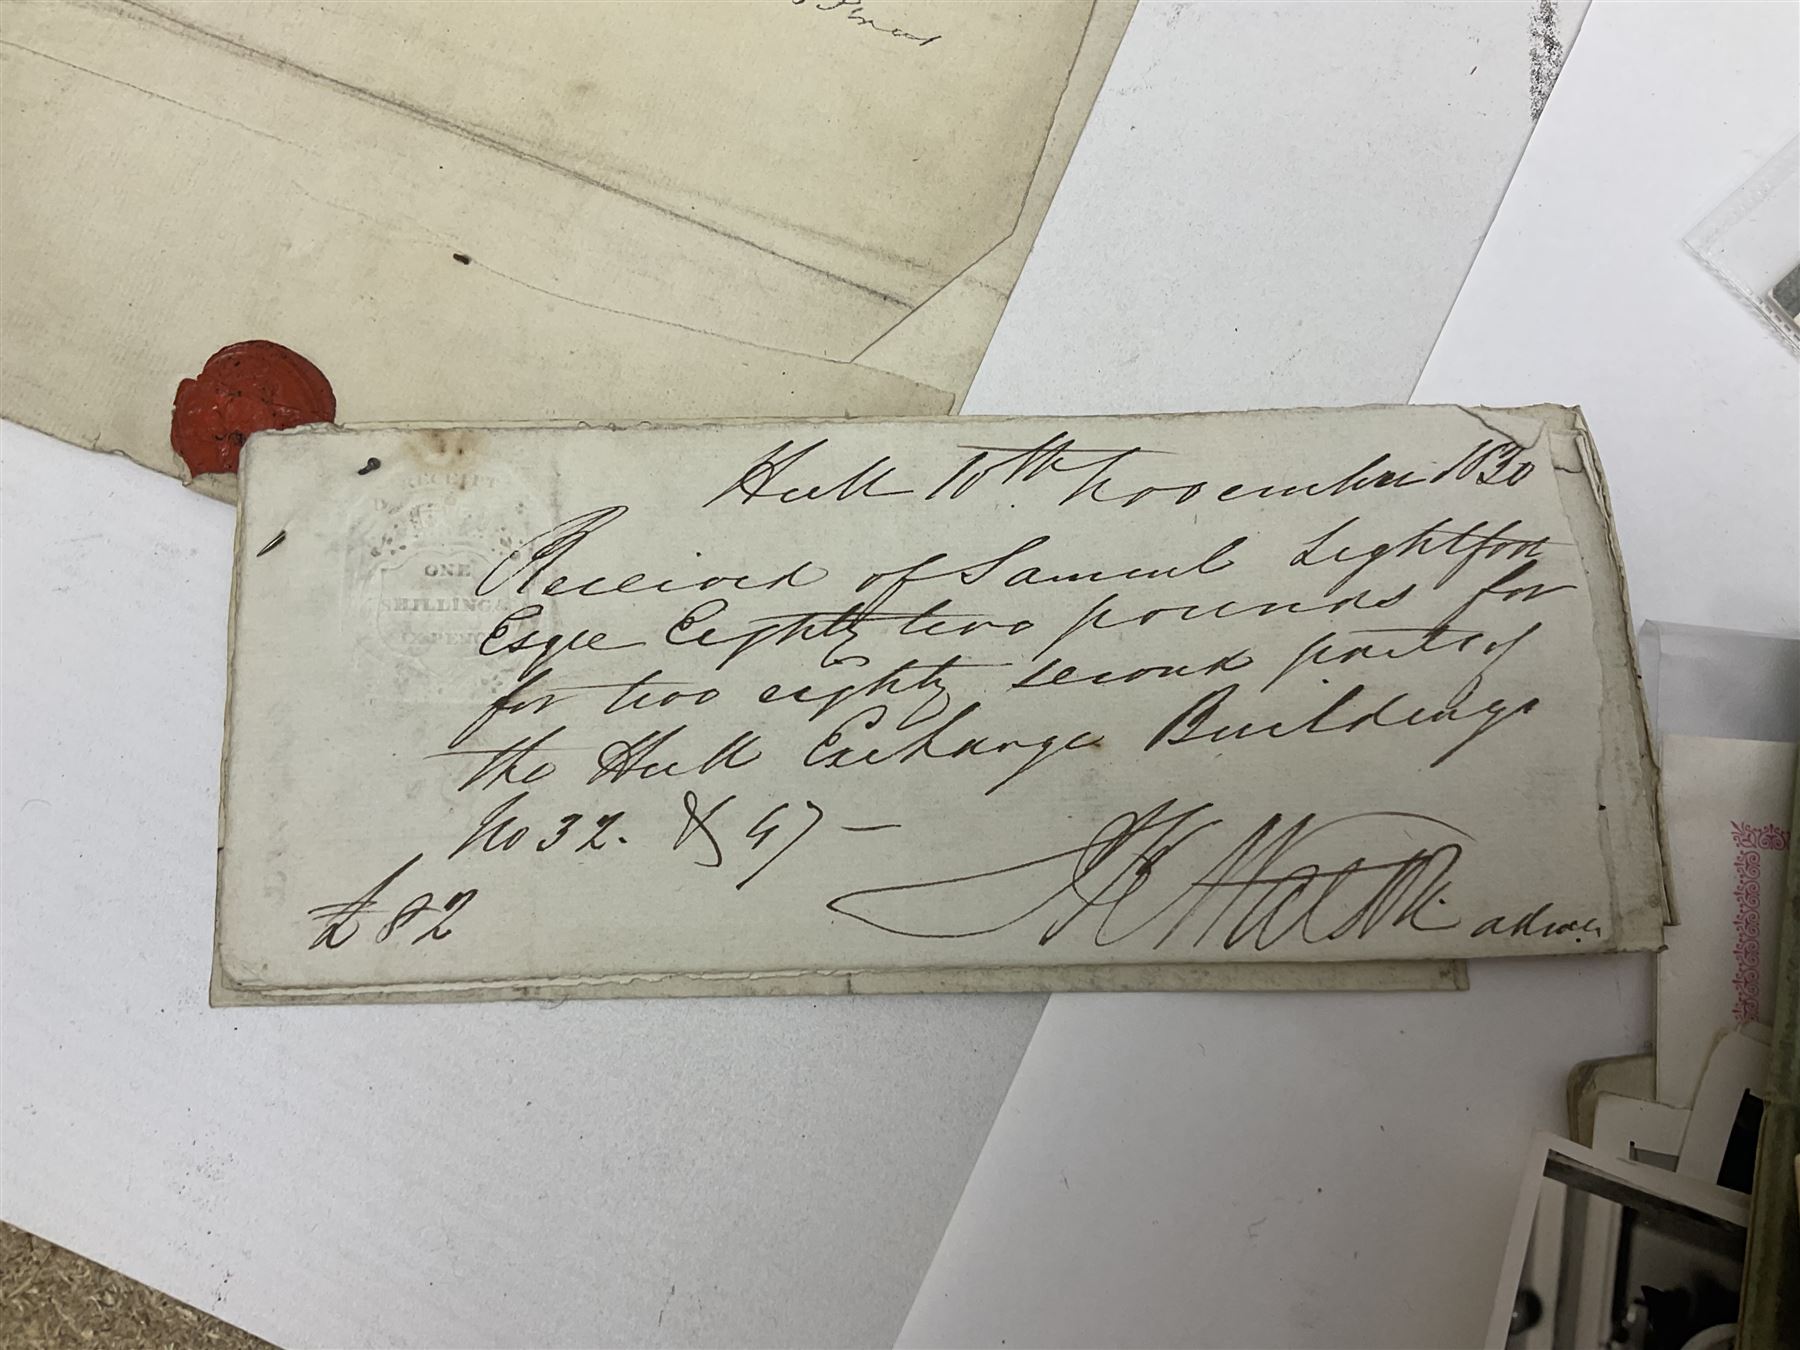 Hull 10th November 1830
Received of Samuel Lightfoot
Esqre Eighty two pounds for
for two eighty second parts of
the Hull Exchange Buildings
No 32. & 47 —
£ 82
RECEIPT
ONE
SHILLING &
SIXPENCE